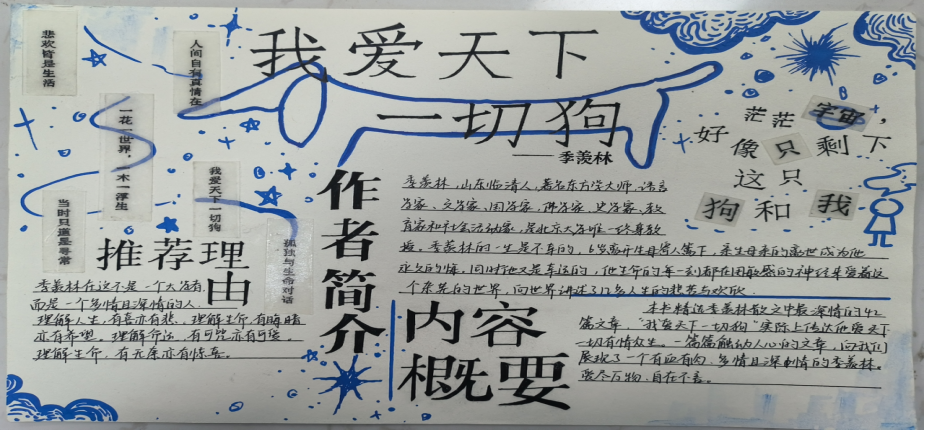 我爱天下
一切狗
——季羡林
悲欢皆是生活
人间自有真情在
一花一世界，一木一浮生
我爱天下一切狗
当时只道是寻常
孤独与生命对话
茫茫宇宙，
好像只剩下
这只
狗和我
推荐理由
季羡林在这不是一个大
而是一个多情且深情的人。
理解人生，有喜亦有悲，理解生命，有晦暗
亦有希望。理解
理解生命，有
作者简介
季羡林，山东临清人，著名东方学大师，语言
学家、文学家、国学家、佛学家、史学家、教
育家和社会活动家，是北京大学唯一终身教
授。季羡林的一生是不幸的，6岁离开生母寄人篱下，亲生母亲的离世成为他
永久的悔，同时他又是幸运的，他生命的每一刻都在用敏感的神经来爱着这
个亲爱的世界，向世界讲述了许多人生的悲苦与欢欣
内容概要
本书精选季羡林散文中最深情的42
篇文章，“我爱天下一切狗”实际上传达他爱天下
一切有情众生。一篇篇触动人心的文章，向我们
展现了一个有血有肉、多情且深情的季羡林。
爱尽万物，自在不言。